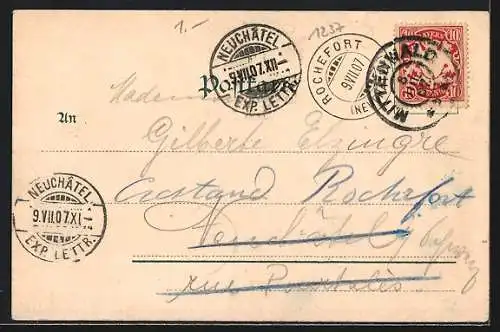 1.-
1237
NEUCHÂTEL
9.VII.07.XII
EXP. LETTR.
ROCHEFORT
9VII07
(NE
BAYERN
10 10
MITTENWALD
Postkarte
Madame
An
Gilberte Elzingre
Rochefort
NEUCHÂTEL
9.VII.07.XI
EXP. LETTR.
Neuchâtel
rue Pourtalès